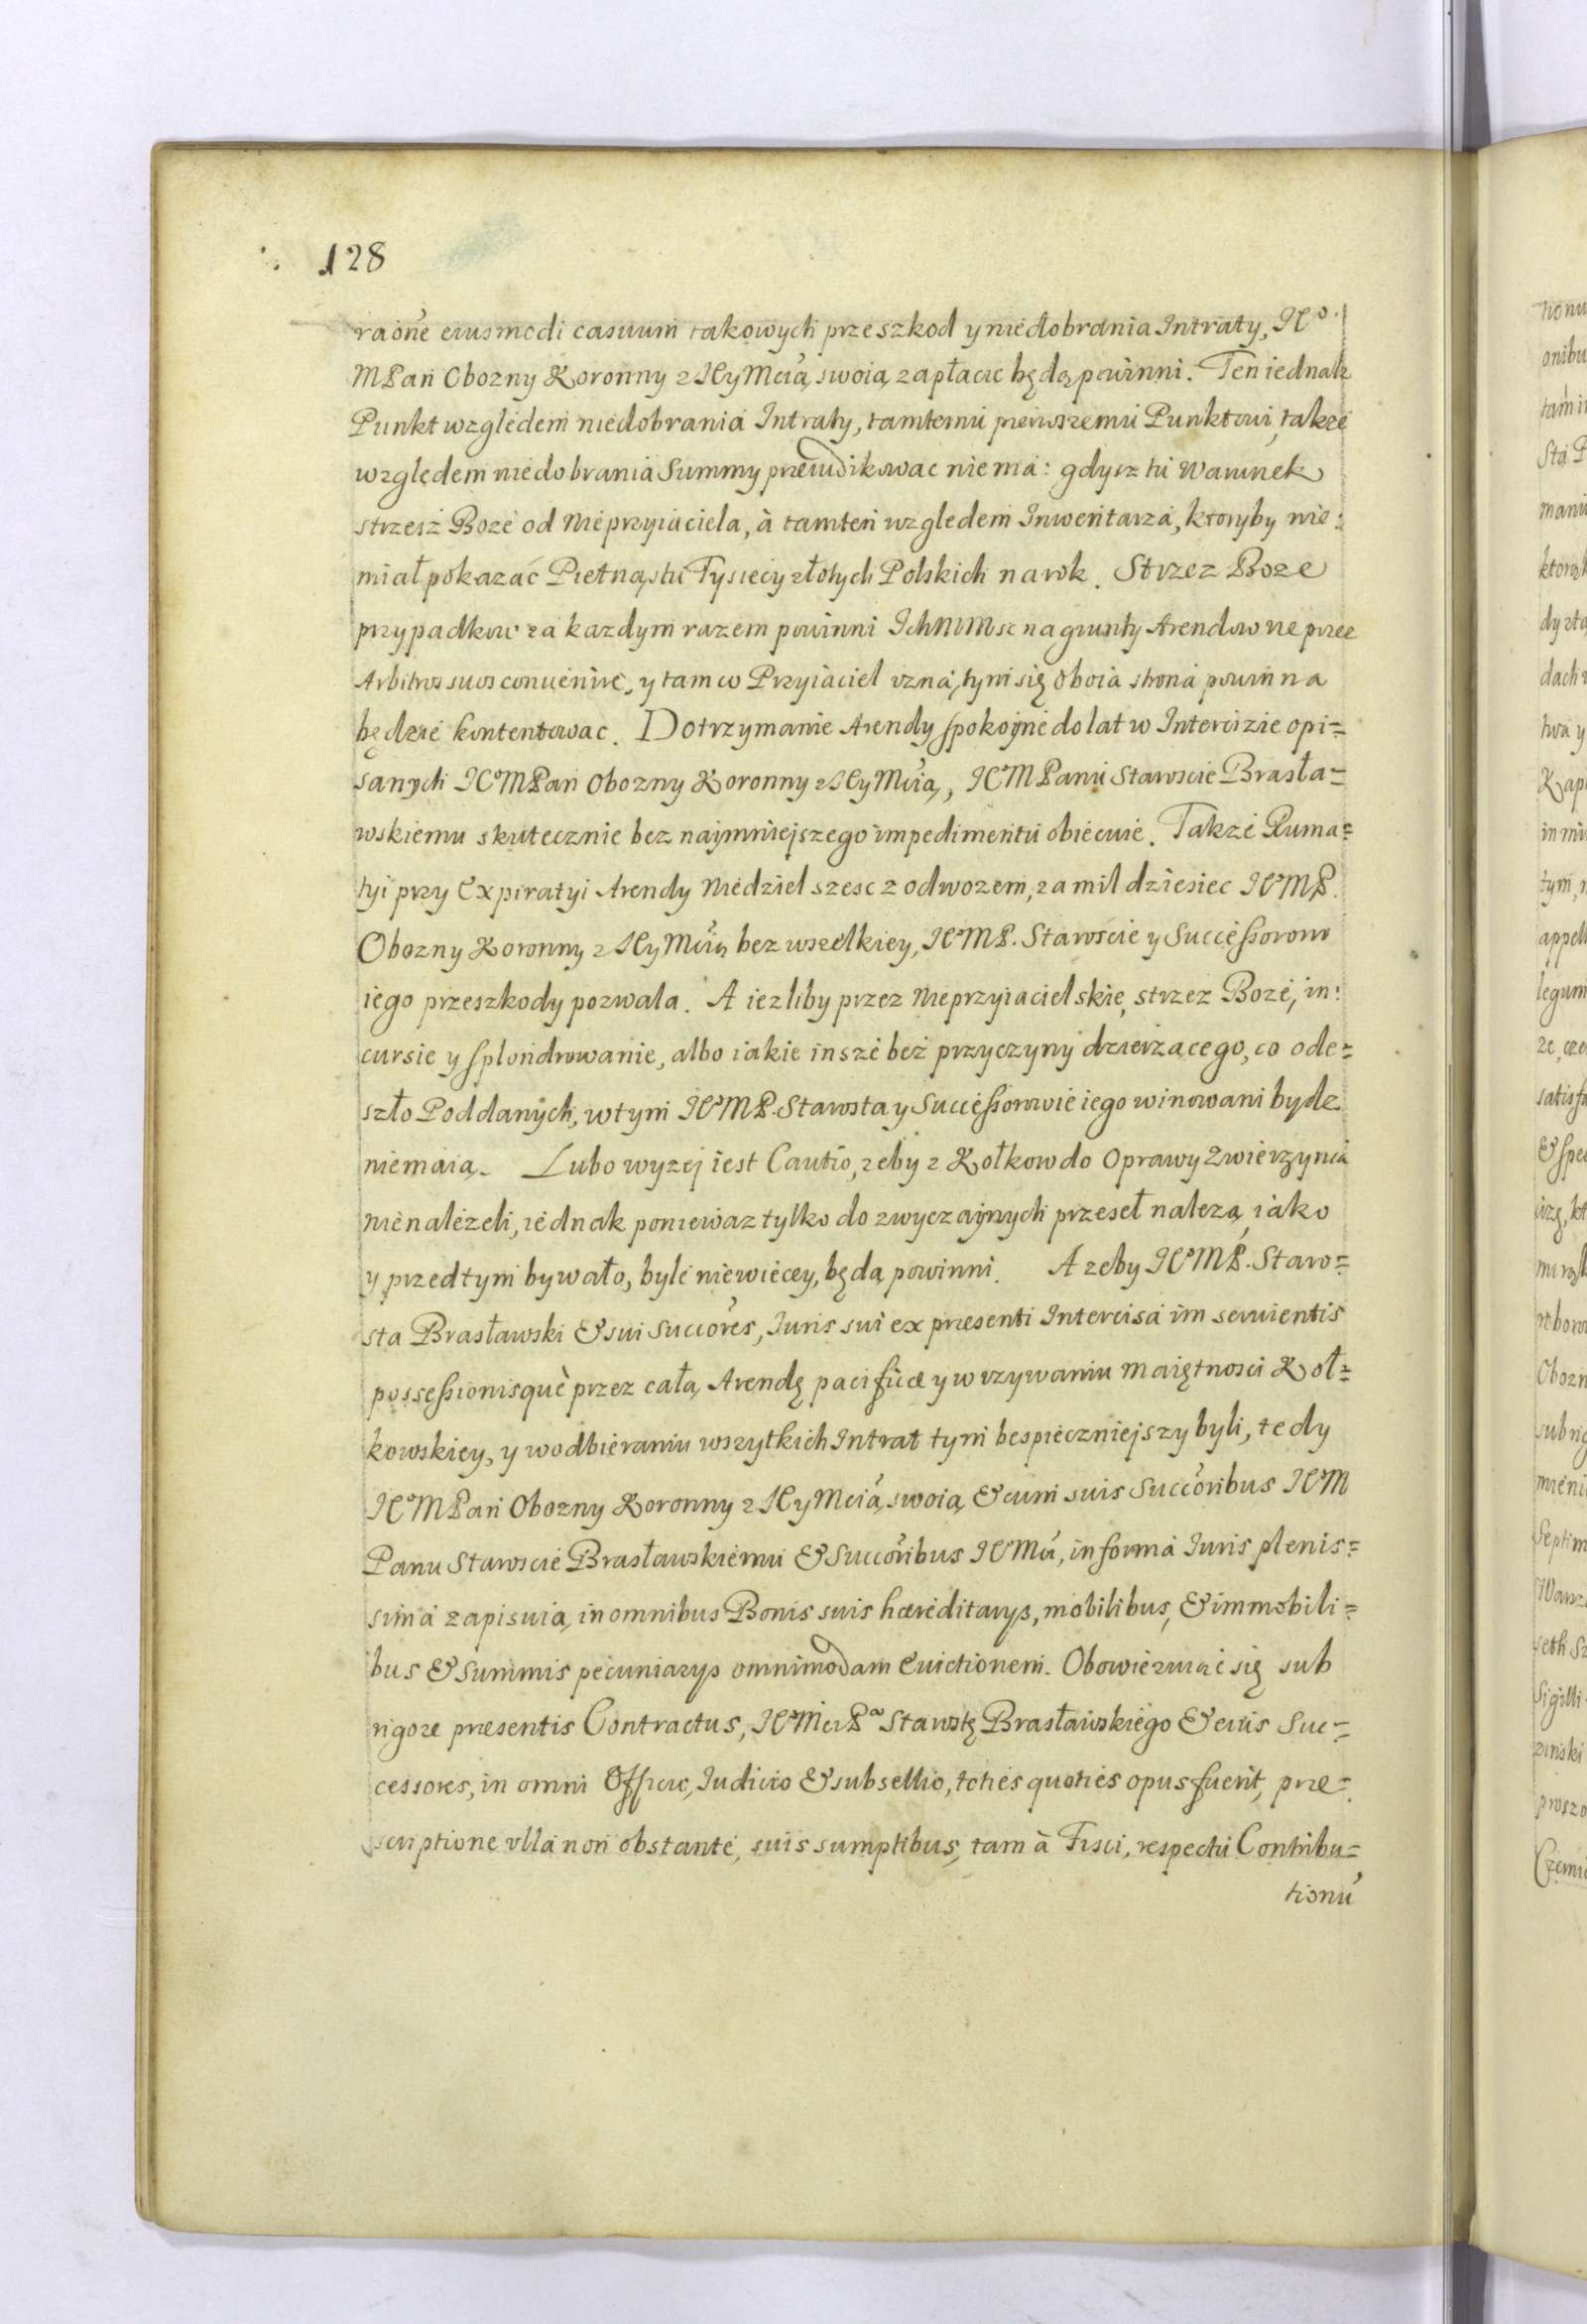 128
raone eiusmodi casuum takowych przeszkod y niedobrania Intraty, JeoM
MPan Obozny Koronny z JeyMcią swoią zapłacic będą powinni. Ten iednak
Punkt względem niedobrania Intraty, tamtemu pierwszemu Punktowi, także
względem niedobrania Summy preiudikowac niema: gdysz tu Warunek
strzesz Boze od Nieprzyiaciela, à tamten względem Inwentarza, ktoryby nie:
miał pokazać Pietnąstu Tysiecy złotych Polskich na rok. Strzez Boze
przypadkow za kazdym razem powinni IchMMsc na grunty Arendowne przez
Arbitros suos convenire, y tam co Przyiaciel uzna, tym się oboia strona powinna
będzie kontentowac. Dotrzymanie Arendy spokoyne do lat w Intercizie opi=
sanych JeoMPan Obozny Koronny z JeyMcią, JeoMPanu Staroscie Brasła=
wskiemu skutecznie bez naymnieyszego impedimentu obiecuie. Takze Ruma=
tyi przy Expiratyi Arendy Niedziel szesc z odwozem, za mil dziesiec JeoMP.
Obozny Koronny z JeyMcią bez wszelkiey, JeoMP. Staroscie y Successorom
iego przeszkody pozwala. A iezliby przez Nieprzyiacielskie, strzez Boze, in:
cursie y splondrowanie, albo iakie insze bez przyczyny dzierzącego, co ode=
szło Poddanych, w tym JeoMP. Starosta y Successorowie iego winowani bydz
niemaią. Lubo wyzej iest Cautio, zeby z Kołkow do Oprawy Zwierzynia
nienalezeli, iednak poniewaz tylko do zwyczaynych przeseł nalezą, iako
y przedtym bywało, byle niewiecey, będą powinni. A zeby JeoMP. Staro=
sta Brasławski & sui succores, Iuris sui ex presenti Intercisa im seruientis
possessionisquè przez całą Arendę pacificæ y w uzywaniu maiętnosci Koł=
kowskiey, y w odbieraniu wszytkich Intrat tym bespiecznieyszy byli, tedy
JeoMPan Obozny Koronny z JeyMcią swoią & cum suis succoribus JeoM
Panu Staroscie Brasławskiemu & succoribus JeoMci, in forma Iuris plenis=
sima zapisuią in omnibus Bonis suis hæreditarys, mobilibus, & immobili=
bus & summis pecuniarys omnimodam Euictionem. Obowiezuiąc się sub
rigore presentis Contractus, JeoMciPa Starostę Brasławskiego & eius Suc=
cessores, in omni Officio, Iudicio & subsellio, toties quoties opus fuerit, pre=
scriptione ulla non obstante, suis sumptibus, tam à Fisci, respectu Contribu=
tionu